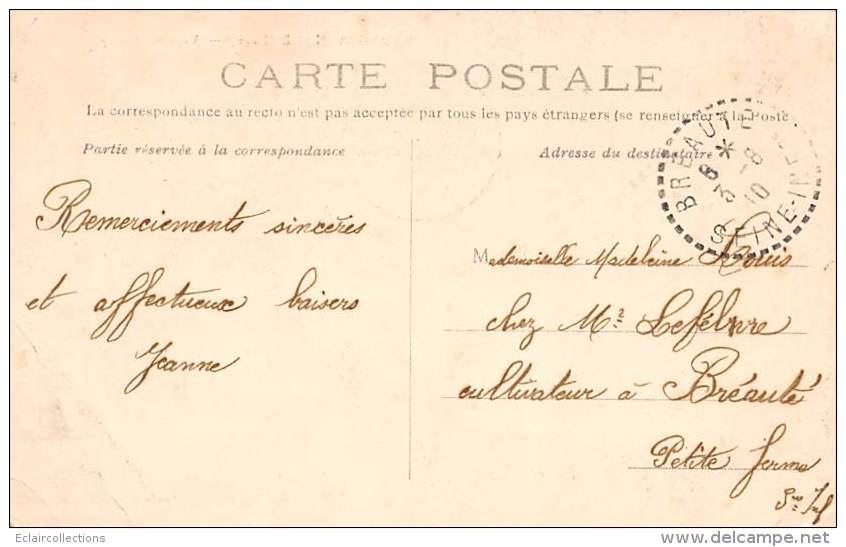 CARTE POSTALE
La correspondance au recto n'est pas acceptée par tous les pays étrangers (se renseigner à la Poste
Partie réservée à la correspondance
Adresse du destinataire
BRÉAUTÉ
8 * 3 -8 10
SEINE-INF
Remerciements sincères
et affectueux baisers
Jeanne
Mademoiselle Madeleine Louis
chez Mr Lefébvre
cultivateur à Bréauté
Petite ferme
Sne Inf
Eclaircollections
delcampe.net